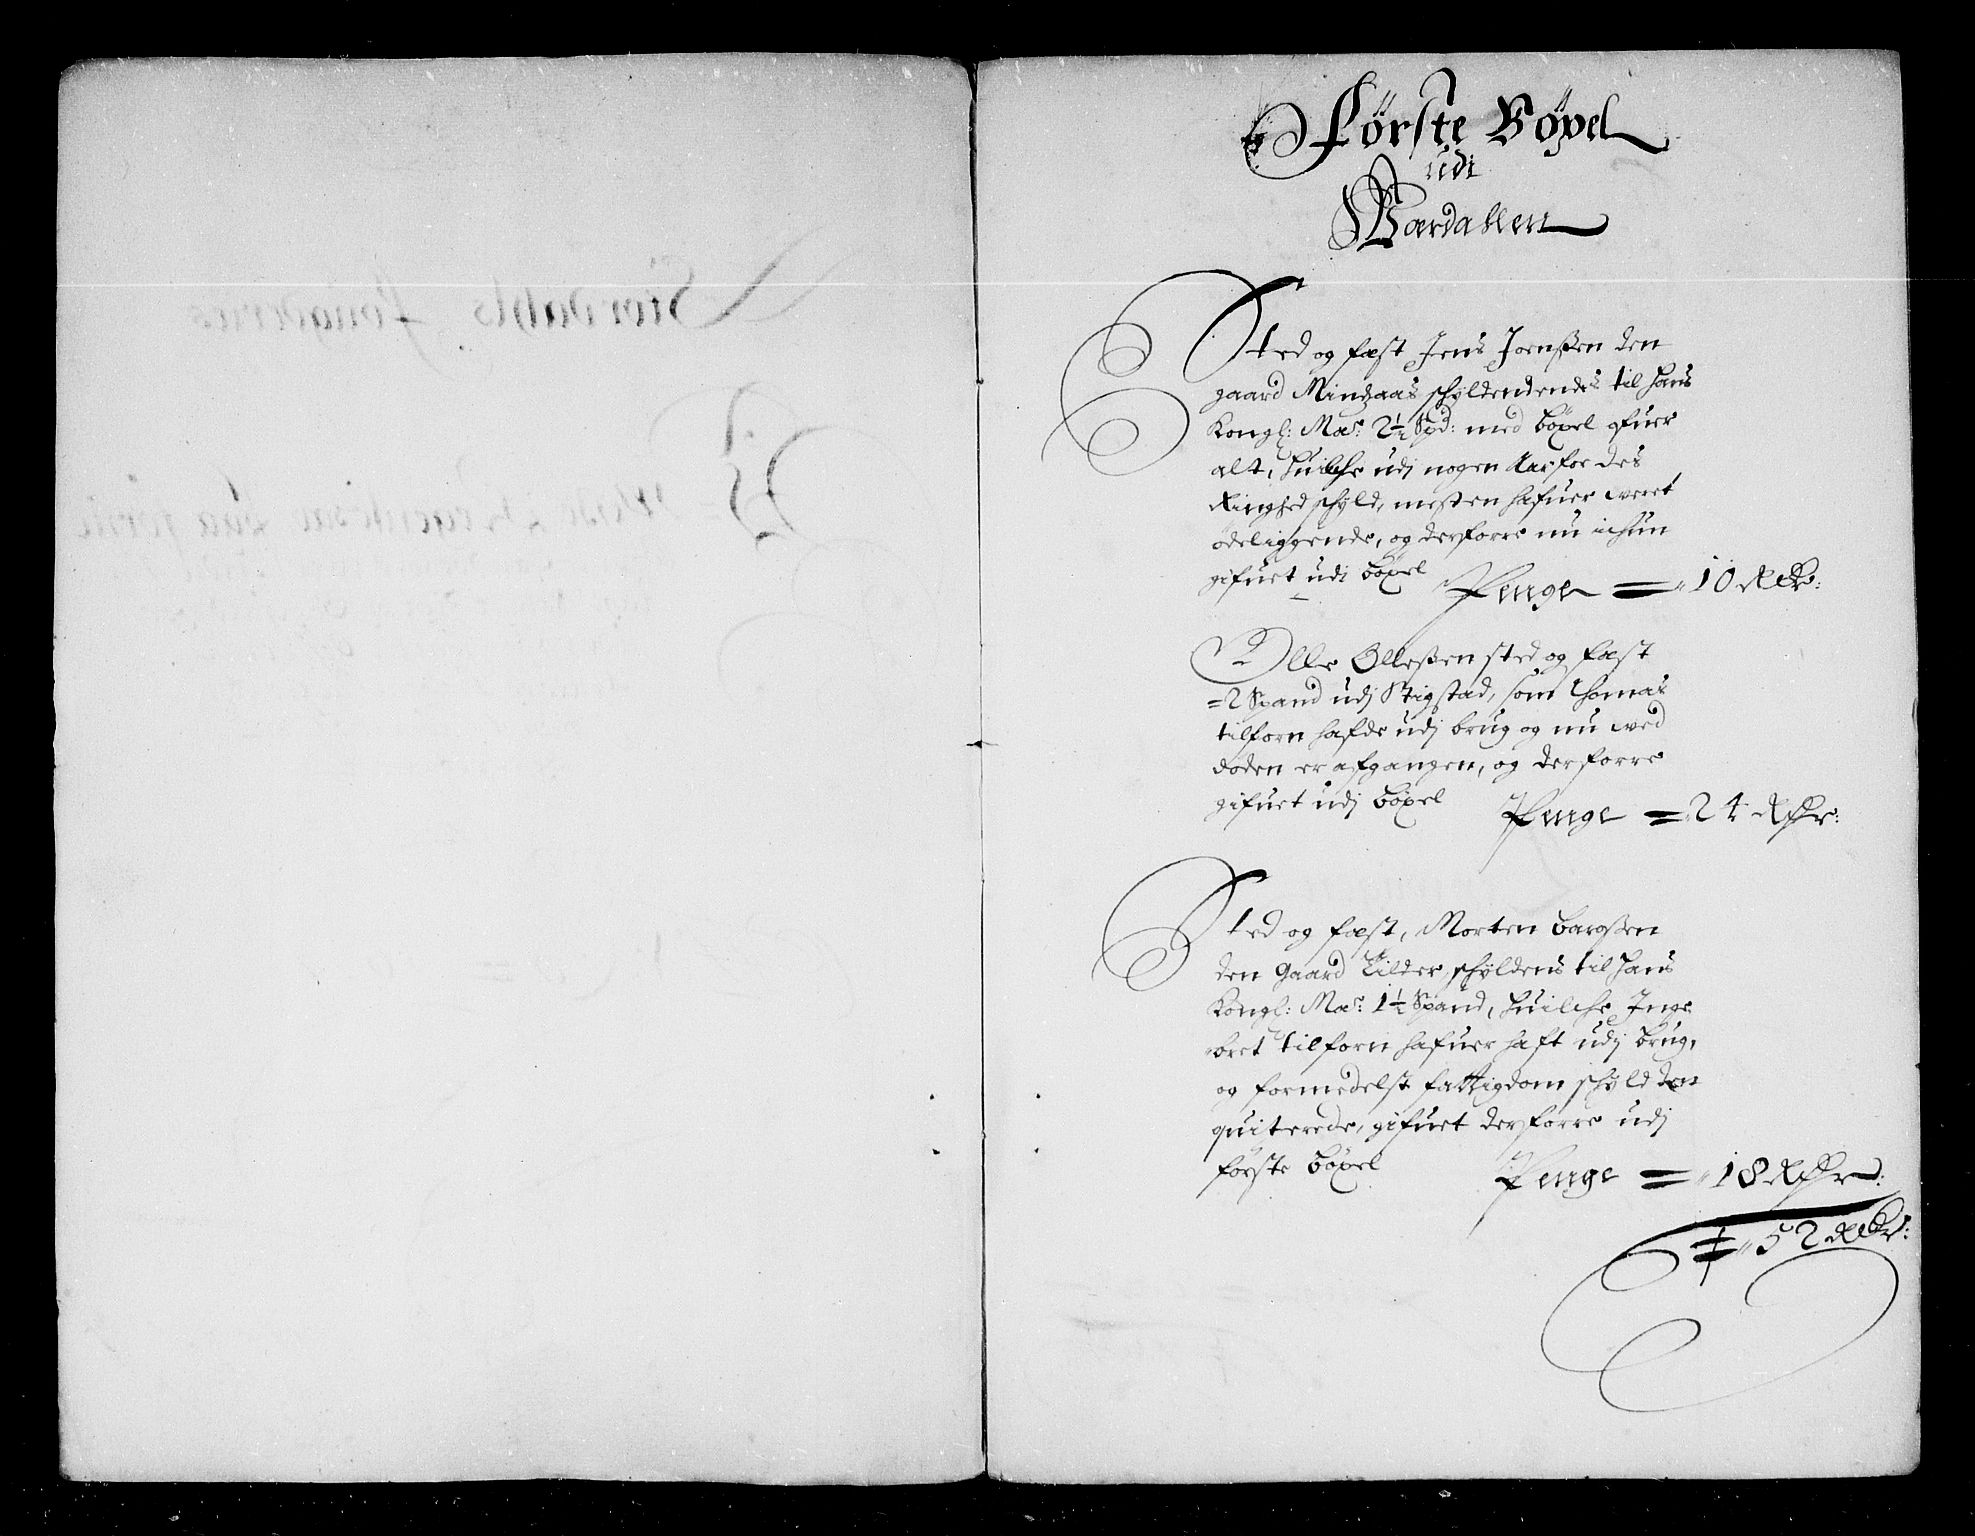 Förste Böxel
udi
Wærdahlen
Sted og fæst Jens Joenßen den
gaard Mindzaas schyldendendes til Hans
Kongl: Maÿ: 2½ Spd: med böxel ofuer
alt, huilche udj nogen Aar for des
Ringhed schyld, mesten hafuer weret
ödeliggende, og derforre nu ichun
gifuet udi böxel Penge = 10 Rdr:
Olle Olleßen sted og fæst
=2 Spand udj Stigstad, som Thomas
tilforn hafde udj brug og nu wed
döden er afgangen, og derforre
gifuet udj böxel Penge = 24 Rdr:
Sted og fæst, Morten Baroßen
den Gaard Tilder schyldens til Hans
Kongl: Maÿ: 1½ Spand, huilche Inge
bret tilforn hafuer haft udj brug,
og formedelst fattigdom schyld den
quiterede, gifuet derforre udj
förste böxel Penge = 18 Rdr:
52 Rdr: